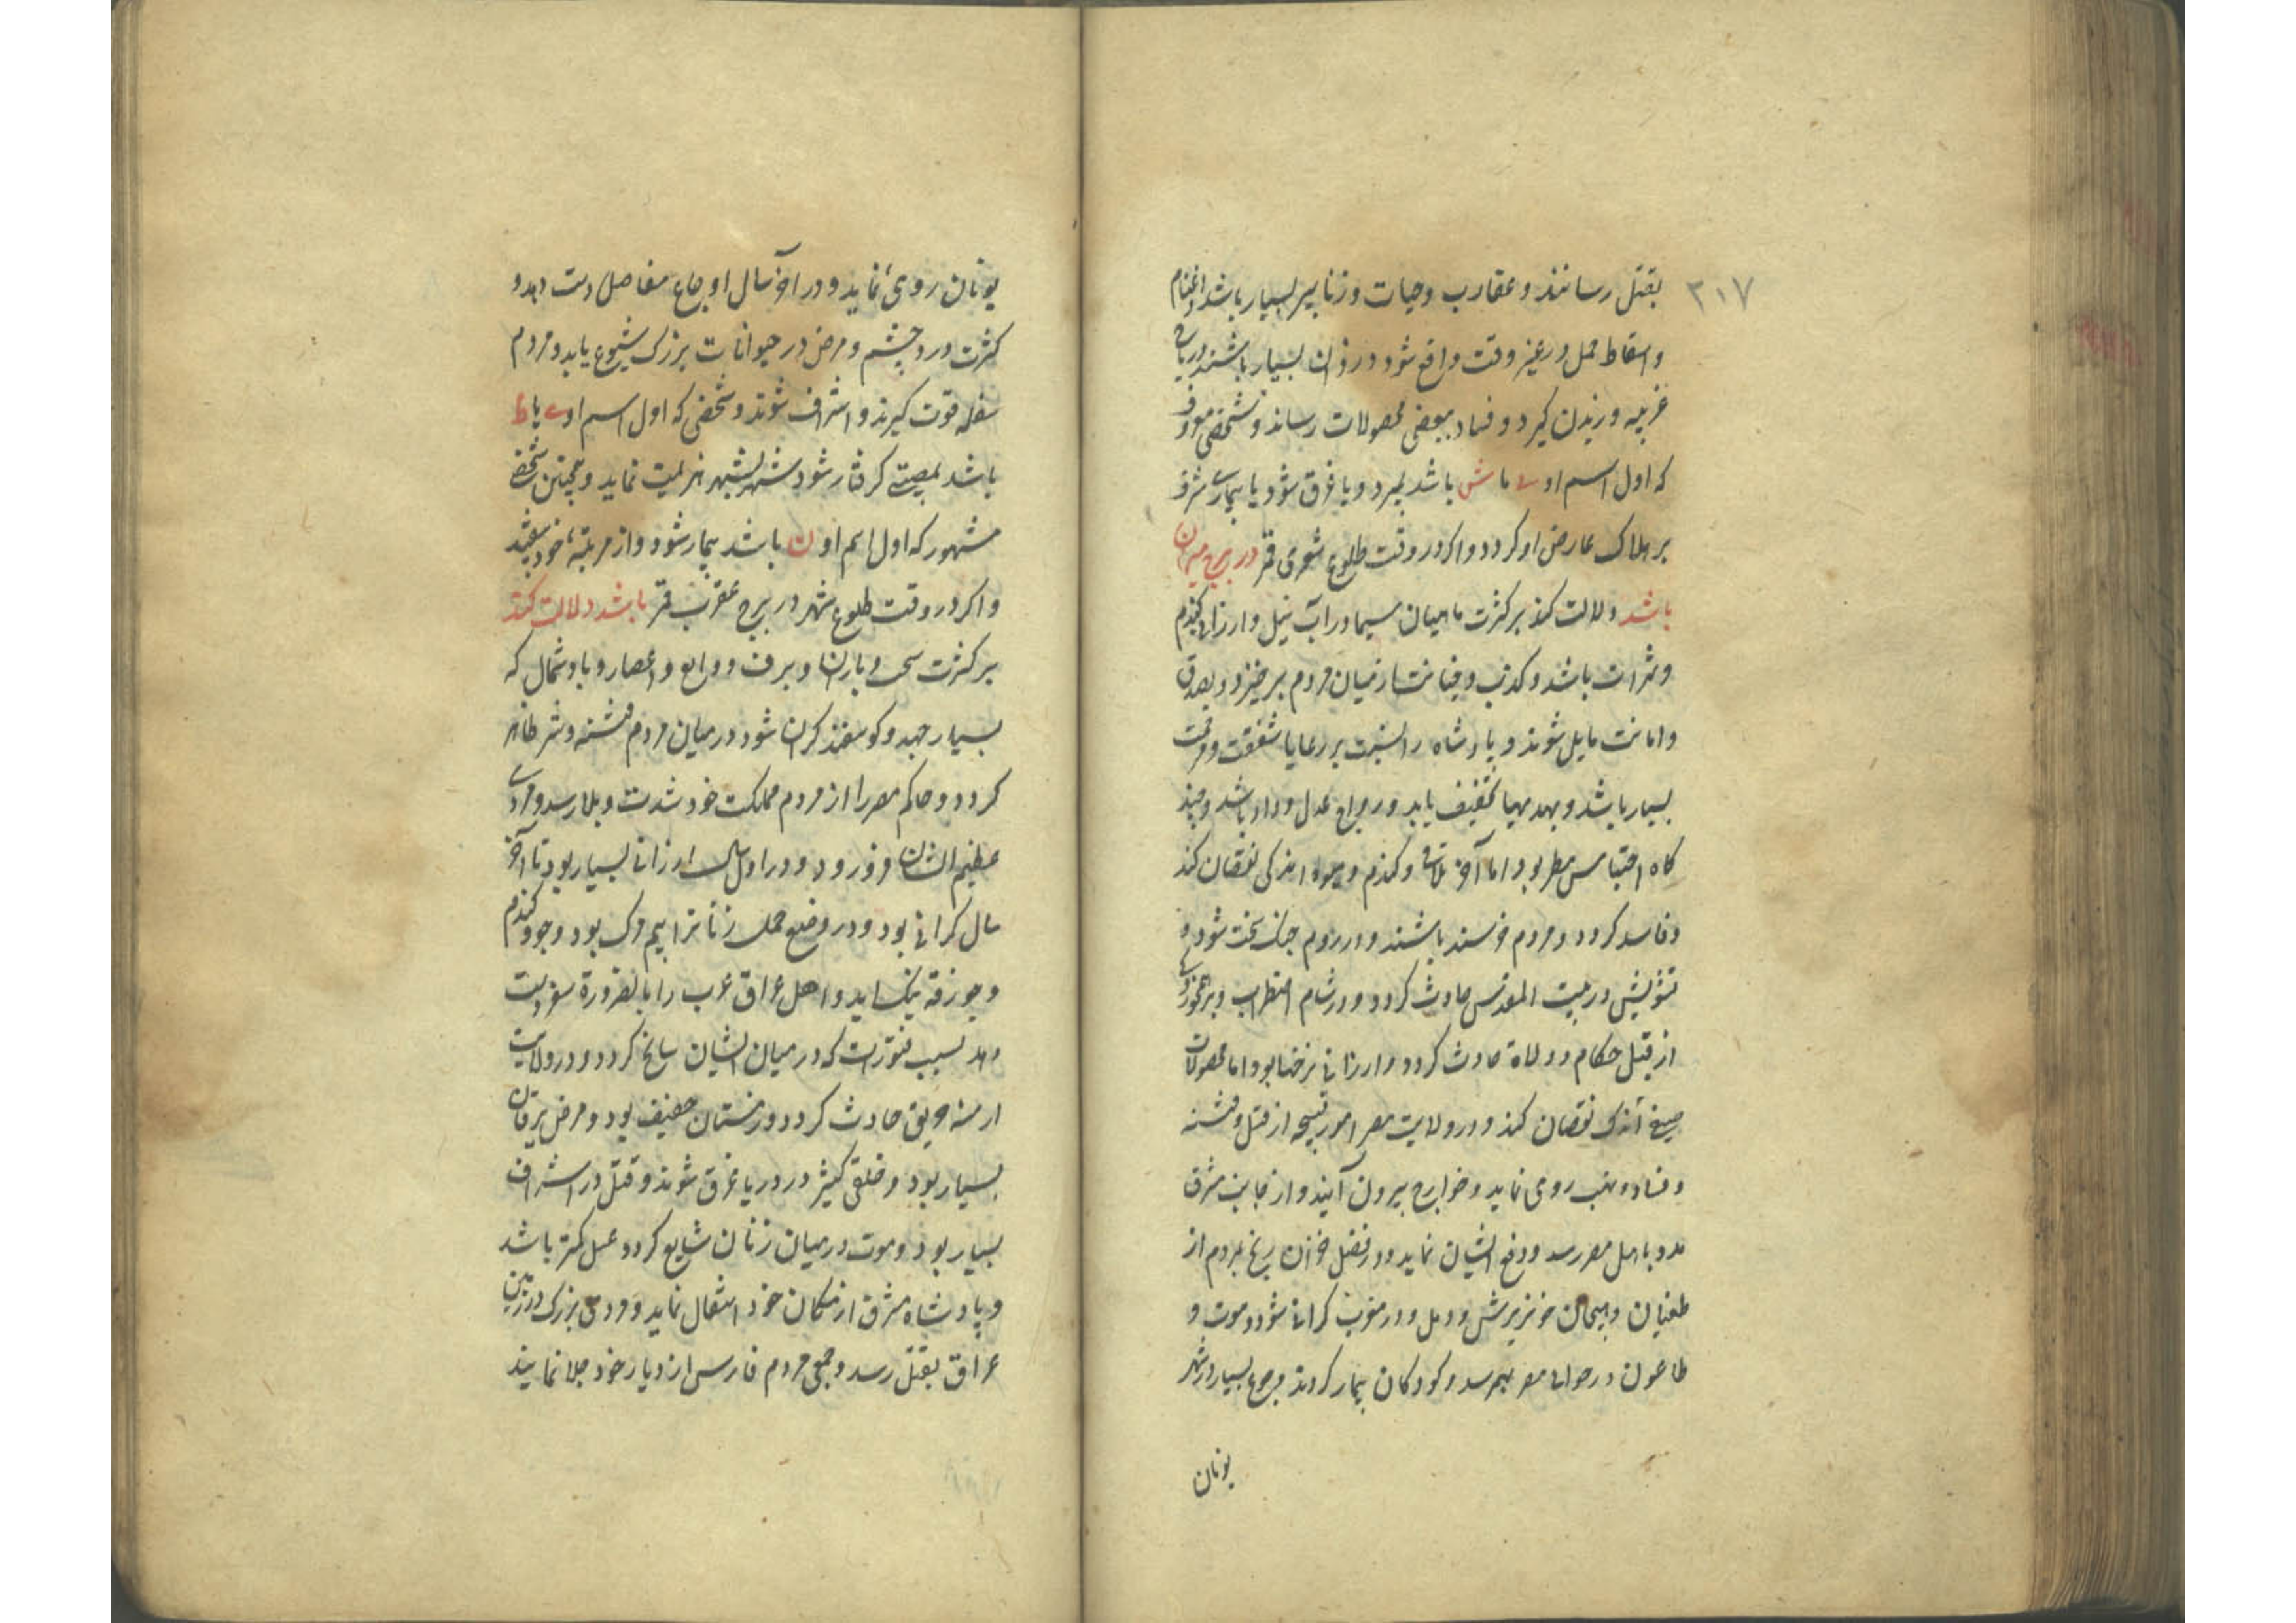 ۳۱۷
بقتل رسانند و عقارب و حیات و زنابیر بسیار باشد و اغنام
و اسقاط حمل در غیر وقت واقع شود دزدان بسیار باشند و ریاح
غریبه وزیدن گیرد و فساد ببعضی محصولات رساند و شخصی معروف
که اول اسم او یا ش باشد بمیرد و یا غرق شود یا بیماری مشرف
بر هلاک عارض او گردد و اگر در وقت طلوع شعری قمر در برج میزان
باشد دلالت کند بر کثرت ماهیان سیما در آب نیل و ارزانی گندم
و ثمرات باشد و کذب و خیانت از میان مردم برخیزد و بصدق
و امانت مایل شوند و پادشاه را نسبت بر رعایا شفقت و رافت
بسیار باشد و تخفیف یابد و رواج عدل و داد باشد و چند
گاه احتباس مطر بود اما آخر و گندم و میوه اندکی نقصان کند
و فاسد گردد و مردم خرسند باشند و در روم جنگ سخت شود و
تشویش در بیت المقدس حادث گردد و در شام اضطراب و
از قبل حکام و ولاة حادث گردد و ارزانی نرخها بود اما محصولات
صیفی اندک نقصان کند و در ولایت مصر امور قبیحه از قتل و فتنه
و فساد و نهب روی نماید و خوارج بیرون آیند و از جانب مشرق
مدد باهل مصر رسد و دفع ایشان نماید و در فصل خزان رنج بمردم از
طغیان و هیجان خون و ریش و دمل و در مغرب گرانی شود و موت و
طاعون در حوالی مصر بهم رسد و کودکان بیمار گردند و جوع بسیار در شهر
یونان
یونان روی نماید و در آخر سال اوجاع مفاصل دست دهد و
کثرت درد چشم و مرض در حیوانات بزرگ شیوع یابد و مردم
سفله قوت گیرند و اشراف شوند و شخصی که اول اسم او ع یا ط
باشد بمصیبتی گرفتار شود و شهر بشهر هزیمت نماید و همچنین شخصی
مشهور که اول اسم او ن باشد بیمار شود و از مرتبه خود بیفتد
و اگر در وقت طلوع شهر در برج عقرب قمر باشد دلالت کند
بر کثرت سحاب و باران و برف و و اعصار و باد شمال که
بسیار جهد و گوسفند گران شود در میان مردم فتنه و شر ظاهر
گردد و حاکم مصر را از مردم مملکت خود شدت و بلا رسد و مردی
عظیم الشان فرو رود و در اول سال ارزانی بسیار بود تا آخر
سال گرانی بود و در وضع حمل زنانرا بیم هلاک بود و جو و گندم
و جوزقه نیک آید و اهل عراق عرب را بالضرورة سفر دست
دهد بسبب فتوری که در میان ایشان سانح گردد و در ولایت
ارمنه حریق حادث گردد و زمستان خفیف بود و مرض یرقان
بسیار بود و خلقی کثیر در دریا غرق شوند و قتل در اشراف
بسیار بود و موت در میان زنان شایع گردد عسل کمتر باشد
و پادشاه مشرق از مکان خود انتقال نماید و مردی بزرگ در زمین
عراق بقتل رسد و جمعی مردم فارس از دیار خود جلا نمایند